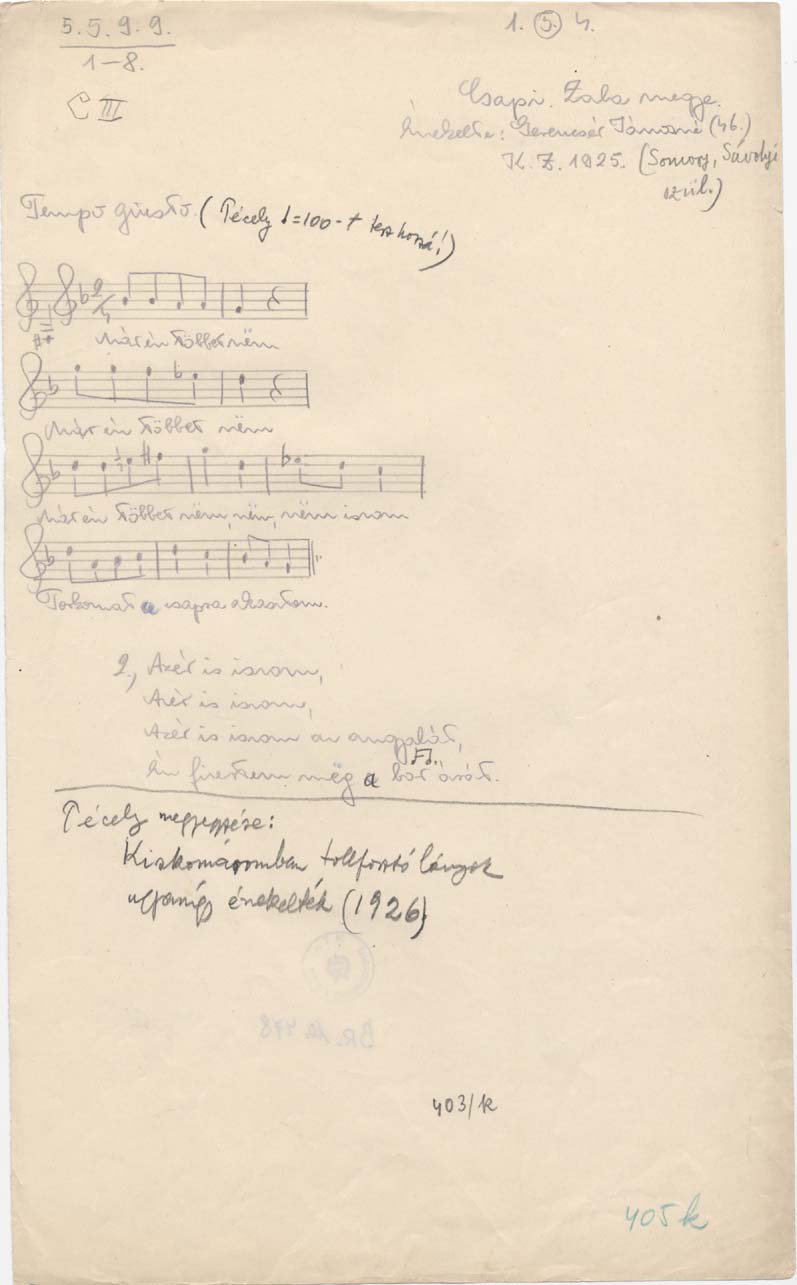 5. 5. 9. 9.
1–8.
C III
1. 5. 4.
Csapi. Zala megye.
Énekelte: Gerencsér Jánosné (46.)
K. Z. 1925. (Somogy, Sávolyi
szül.)
Tempo giusto. (Pécely ♩=100-t tesz hozzá!)
2/4
Már én többet nëm
Már én többet nëm
Már én többet nëm, nëm, nëm iszom
Torkomat a csapra akasztom.
2., Azér is iszom,
Azér is iszom,
Azér is iszom az angyalát,
Én fizettem mëg a bor árát.
Pécely megjegyzése:
Kiskomáromban tollfosztó lányok
ugyanígy énekelték (1926)
BR. 10.478
403/k
405 k